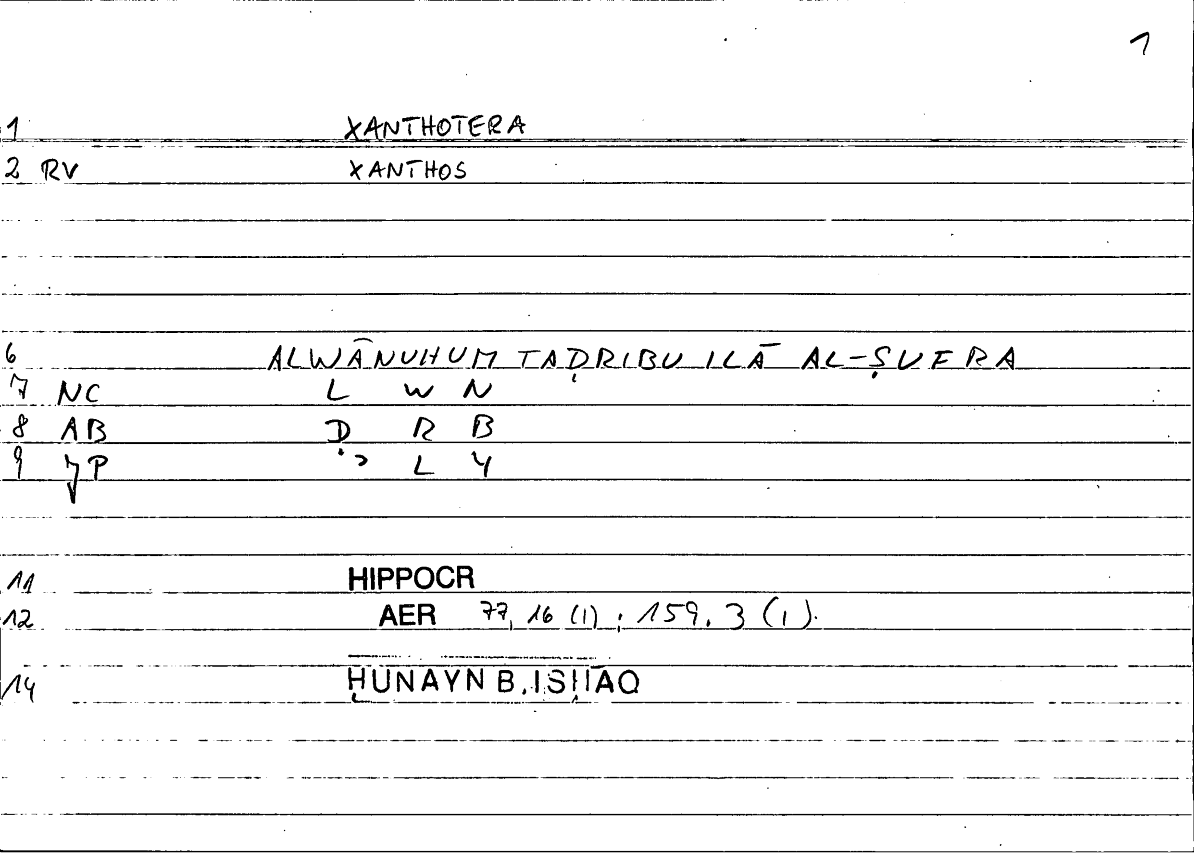 1
1 XANTHOTERA
2 RV XANTHOS
6 ALWĀNUHUM TAḌRIBU ILĀ AL-ṢUFRA
7 NC L W N
8 AB Ḍ R B
9 JP ʾ L Y
11 HIPPOCR
12 AER 77, 16 (1) ; 159. 3 (1).
14 ḤUNAYN B. ISḤĀQ